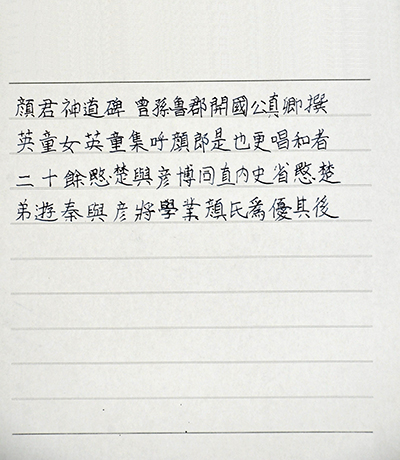 顔君神道碑 曾孫魯郡開國公真卿撰
英童女英童集呼顔郎是也更唱和者
二十餘愍楚與彦博同直内史省愍楚
弟遊秦與彦將學業顔氏爲優其後